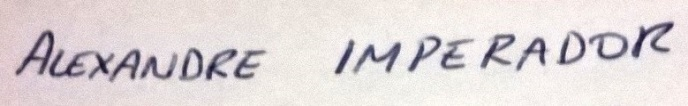 ALEXANDRE IMPERADOR